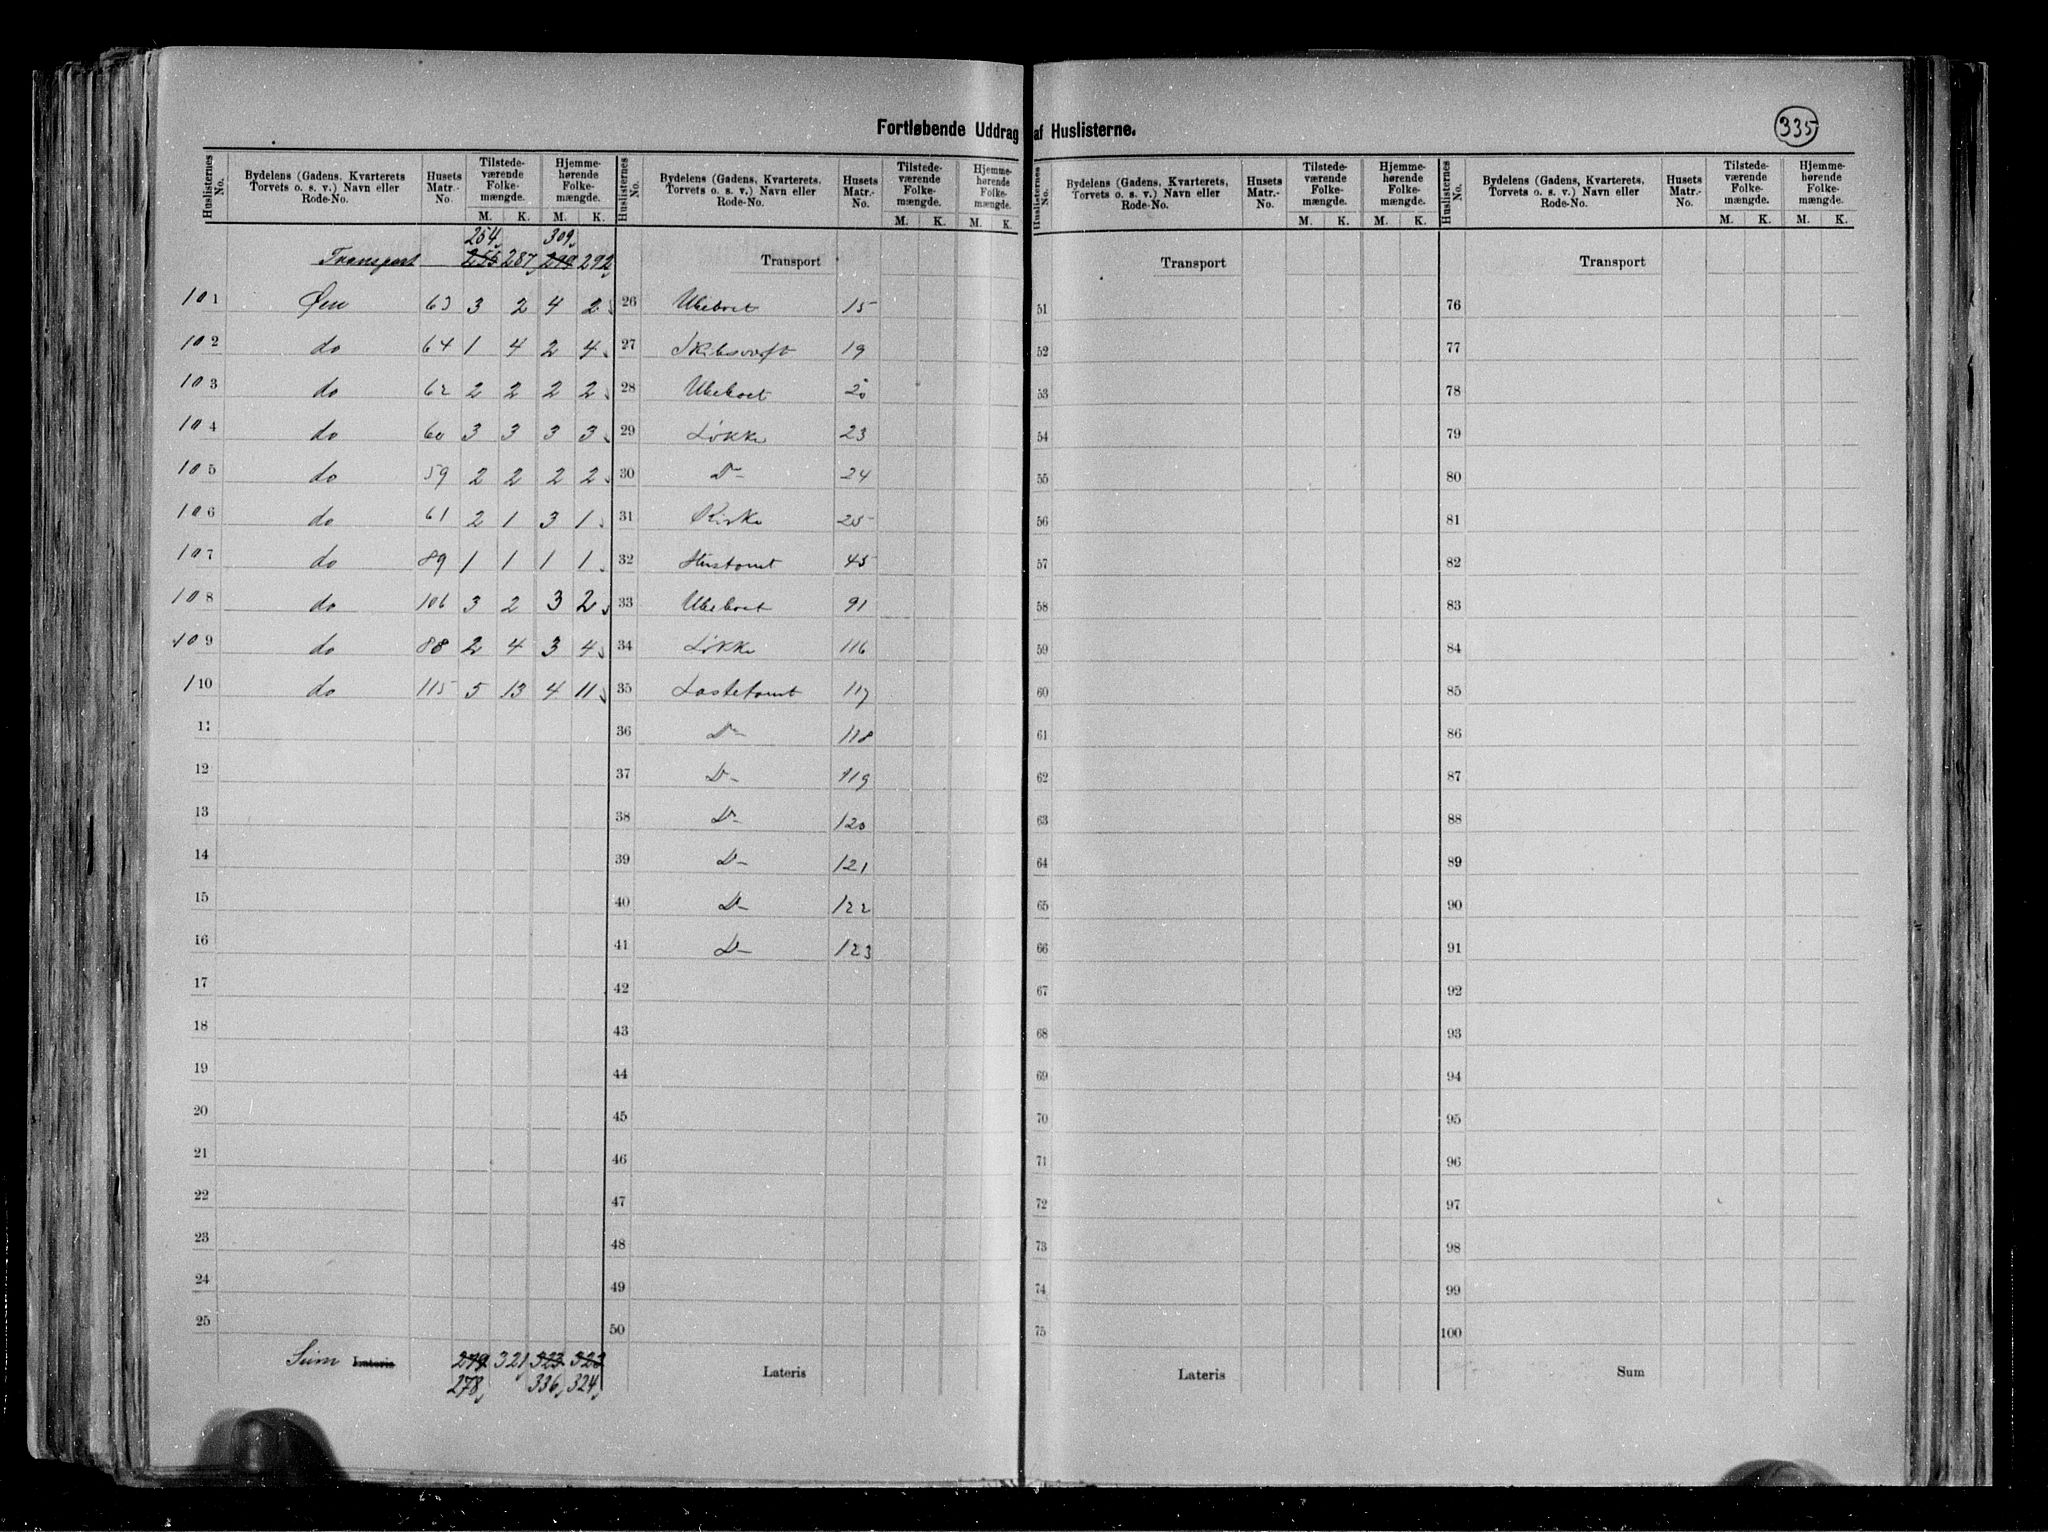 Fortløbende Uddrag af Huslisterne.
335
Huslisternes No. | Bydelens (Gadens, Kvarterets, Torvets o. s. v.) Navn eller Rode-No. | Husets Matr.-No. | Tilstede-værende Folke-mængde. M. K. | Hjemme-hørende Folke-mængde. M. K.
Huslisternes No. | Bydelens (Gadens, Kvarterets, Torvets o. s. v.) Navn eller Rode-No. | Husets Matr.-No. | Tilstede-værende Folke-mængde. M. K. | Hjemme-hørende Folke-mængde. M. K.
Huslisternes No. | Bydelens (Gadens, Kvarterets, Torvets o. s. v.) Navn eller Rode-No. | Husets Matr.-No. | Tilstede-værende Folke-mængde. M. K. | Hjemme-hørende Folke-mængde. M. K.
Huslisternes No. | Bydelens (Gadens, Kvarterets, Torvets o. s. v.) Navn eller Rode-No. | Husets Matr.-No. | Tilstede-værende Folke-mængde. M. K. | Hjemme-hørende Folke-mængde. M. K.
254 309
Transport 255 287 299 292
101 Øen 63 3 2 4 2
102 do 64 1 4 2 4
103 do 62 2 2 2 2
104 do 60 3 3 3 3
105 do 59 2 2 2 2
106 do 61 2 1 3 1
107 do 89 1 1 1 1
108 do 106 3 2 3 2
109 do 88 2 4 3 4
110 do 115 5 13 4 11
11
12
13
14
15
16
17
18
19
20
21
22
23
24
25
Sum Lateris 279 321 323 323
278 336 324
Transport
26 Ubeboet 15
27 Skibsværft 19
28 Ubeboet 20
29 Løkke 23
30 Do 24
31 Kirke 25
32 Hustomt 45
33 Ubeboet 91
34 Løkke 116
35 Lastetomt 117
36 Do 118
37 D- 119
38 D- 120
39 D- 121
40 D- 122
41 D- 123
42
43
44
45
46
47
48
49
50
Lateris
Transport
51
52
53
54
55
56
57
58
59
60
61
62
63
64
65
66
67
68
69
70
71
72
73
74
75
Lateris
Transport
76
77
78
79
80
81
82
83
84
85
86
87
88
89
90
91
92
93
94
95
96
97
98
99
100
Sum